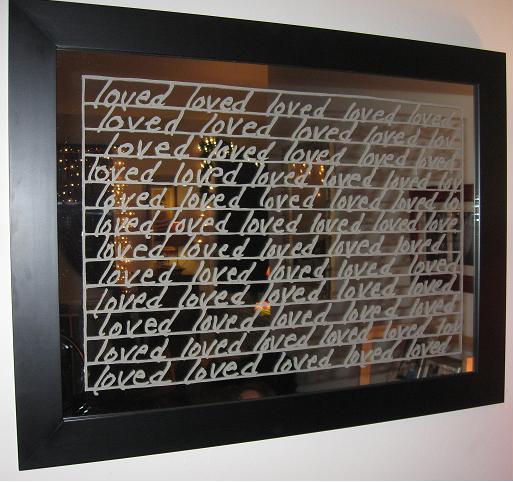 loved loved loved loved loved
loved loved loved loved lov
loved loved loved loved loved
loved loved loved loved loved lov
loved loved loved loved loved lo
loved loved loved loved loved love
loved loved loved loved loved
loved loved loved loved loved
loved loved loved loved loved
loved loved loved loved loved
loved loved loved loved loved lov
loved loved loved loved loved